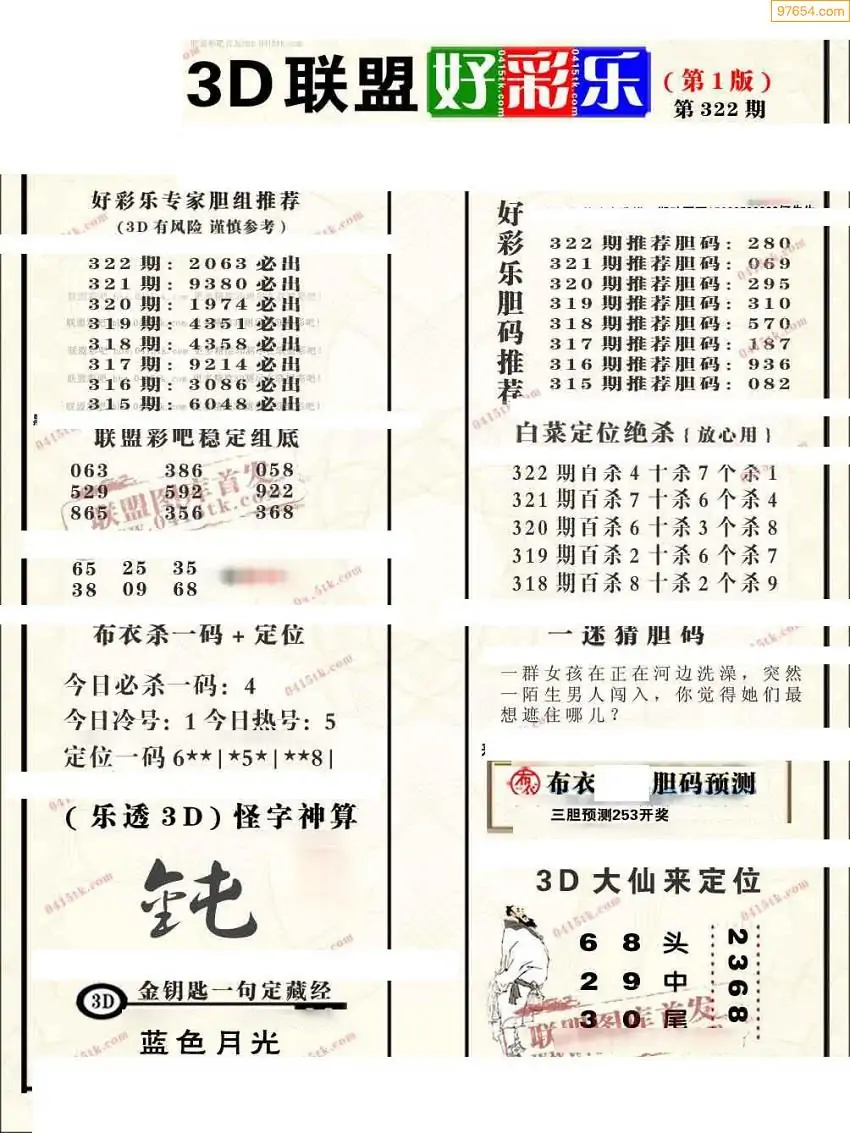 97654.com
3D联盟好彩乐
(第1版)
第322期
好彩乐专家胆组推荐
(3D有风险 谨慎参考)
322期:2063必出
321期:9380必出
320期:1974必出
319期:4351必出
318期:4358必出
317期:9214必出
316期:3086必出
315期:6048必出
联盟彩吧稳定组底
063 386 058
529 592 922
865 356 368
65 25 35
38 09 68
布衣杀一码+定位
今日必杀一码:4
今日冷号:1今日热号:5
定位一码6**|*5*|**8|
(乐透3D)怪字神算
钝
3D 金钥匙一句定藏经
蓝色月光
好彩乐胆码推荐
322期推荐胆码:280
321期推荐胆码:069
320期推荐胆码:295
319期推荐胆码:310
318期推荐胆码:570
317期推荐胆码:187
316期推荐胆码:936
315期推荐胆码:082
白菜定位绝杀{放心用}
322期百杀4十杀7个杀1
321期百杀7十杀6个杀4
320期百杀6十杀3个杀8
319期百杀2十杀6个杀7
318期百杀8十杀2个杀9
一迷猜胆码
一群女孩在正在河边洗澡，突然
一陌生男人闯入，你觉得她们最
想遮住哪儿？
布衣 胆码预测
三胆预测253开奖
3D大仙来定位
6 8 头
2 9 中
3 0 尾
2368
联盟图库首发
0415tk.com